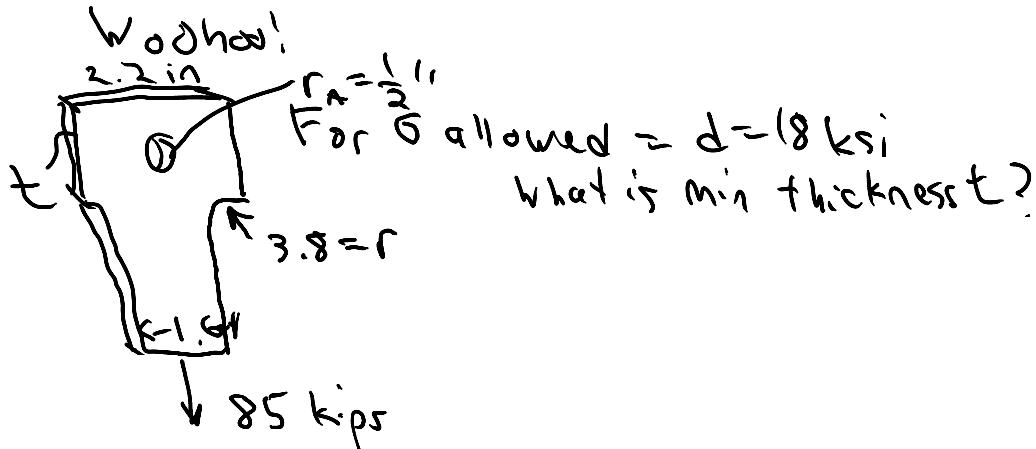 Woohoo!
2.2 in
r_A = 1/2"
For σ allowed = d = 18 ksi
What is min thickness t?
t
3.8 = r
85 kips